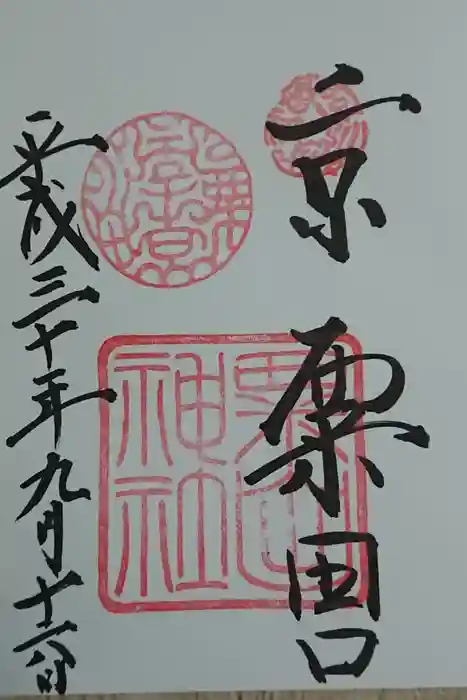 京
粟田口
平成三十年九月十六日
粟田神社